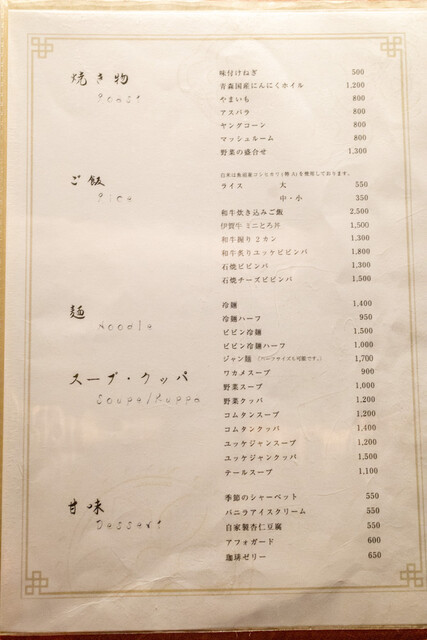 焼き物
Roast
味付けねぎ 500
青森国産にんにくホイル 1,200
やまいも 800
アスパラ 800
ヤングコーン 800
マッシュルーム 800
野菜の盛合せ 1,300
ご飯
Rice
白米は魚沼産コシヒカリ(特A)を使用しております。
ライス 大 550
中・小 350
和牛炊き込みご飯 2,500
伊賀牛ミニとろ丼 1,500
和牛握り2カン 1,300
和牛炙りユッケビビンバ 1,800
石焼ビビンバ 1,300
石焼チーズビビンバ 1,500
麺
Noodle
冷麺 1,400
冷麺ハーフ 950
ビビン冷麺 1,500
ビビン冷麺ハーフ 1,000
ジャン麺 (ハーフサイズも可能です。) 1,700
スープ・クッパ
Soupe/Kuppa
ワカメスープ 900
野菜スープ 1,000
野菜クッパ 1,200
コムタンスープ 1,200
コムタンクッパ 1,400
ユッケジャンスープ 1,200
ユッケジャンクッパ 1,500
テールスープ 1,100
甘味
Dessert
季節のシャーベット 550
バニラアイスクリーム 550
自家製杏仁豆腐 550
アフォガード 600
珈琲ゼリー 650